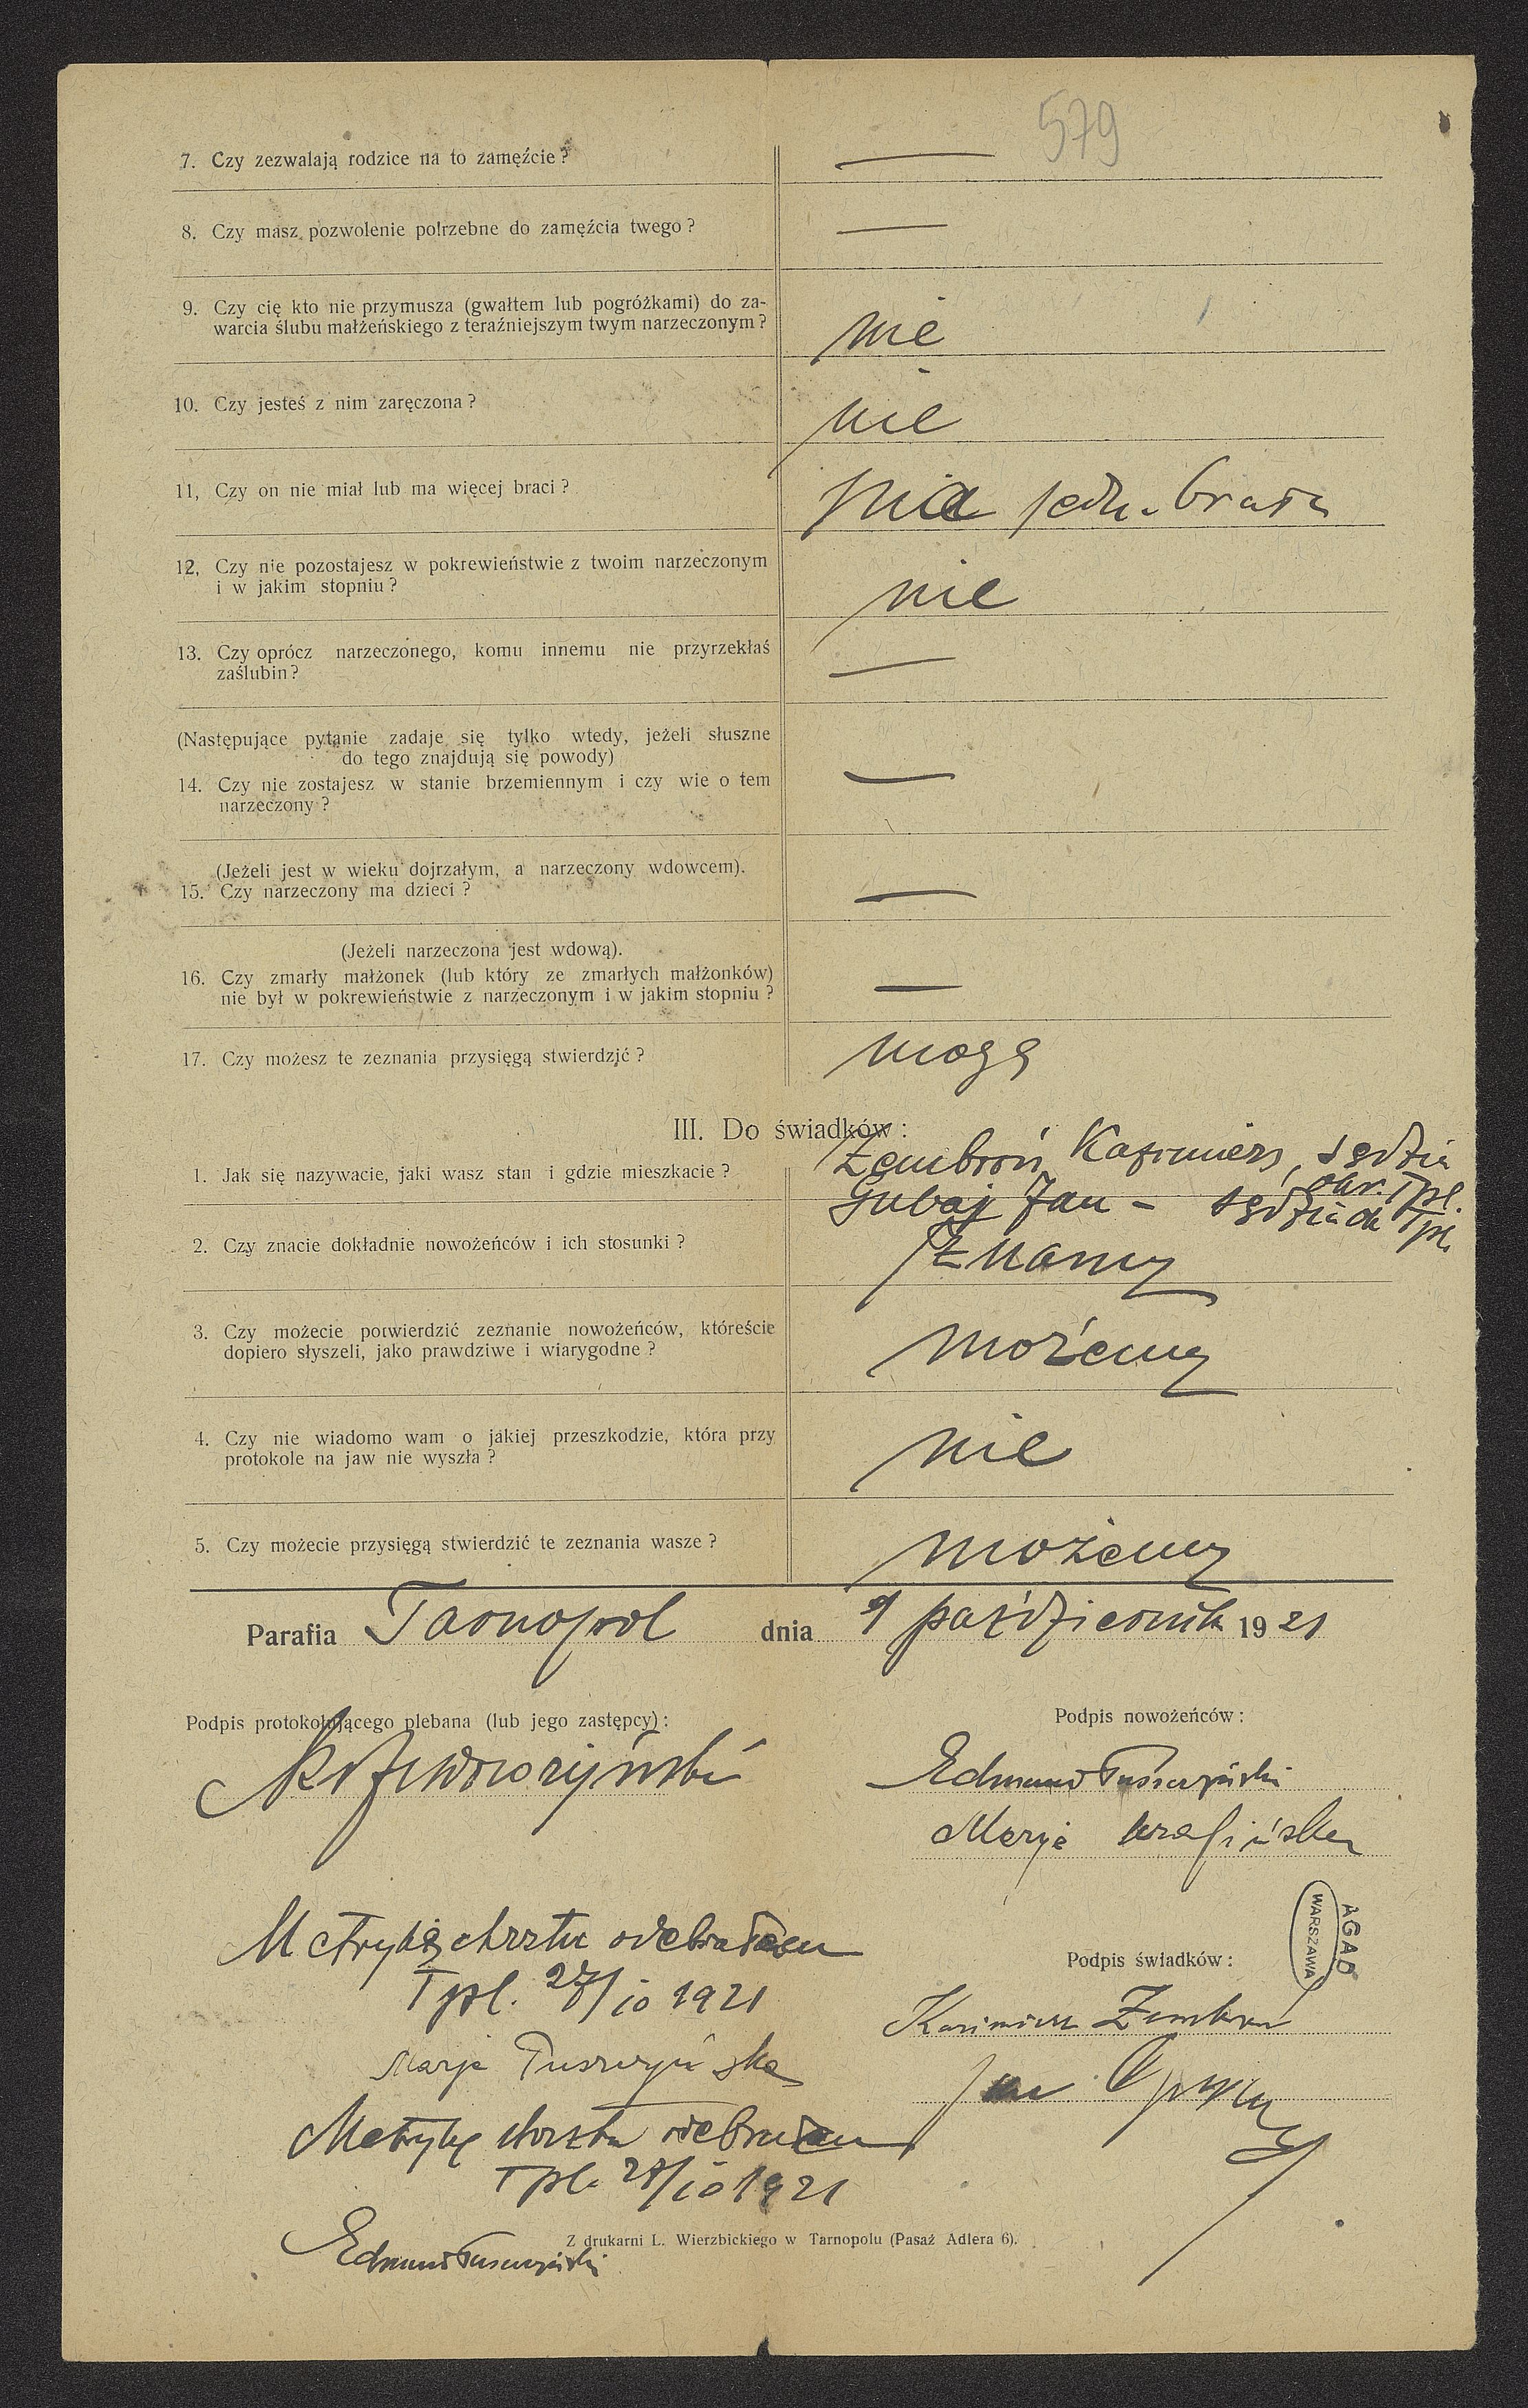 579
7. Czy zezwalają rodzice na to zamęźcie? —
8. Czy masz pozwolenie potrzebne do zamęźcia twego? —
9. Czy cię kto nie przymusza (gwałtem lub pogróżkami) do za-
warcia ślubu małżeńskiego z teraźniejszym twym narzeczonym? nie
10. Czy jesteś z nim zaręczona? nie
11, Czy on nie miał lub ma więcej braci? ma jedn. brata
12, Czy nie pozostajesz w pokrewieństwie z twoim narzeczonym
i w jakim stopniu? nie
13. Czy oprócz narzeczonego, komu innemu nie przyrzekłaś
zaślubin? —
(Następujące pytanie zadaje się tylko wtedy, jeżeli słuszne
do tego znajdują się powody)
14. Czy nie zostajesz w stanie brzemiennym i czy wie o tem
narzeczony? —
(Jeżeli jest w wieku dojrzałym, a narzeczony wdowcem).
15. Czy narzeczony ma dzieci? —
(Jeżeli narzeczona jest wdową).
16. Czy zmarły małżonek (lub który ze zmarłych małżonków)
nie był w pokrewieństwie z narzeczonym i w jakim stopniu? —
17. Czy możesz te zeznania przysięgą stwierdzić? mogę
III. Do świadków:
1. Jak się nazywacie, jaki wasz stan i gdzie mieszkacie? Zembroń Kazimierz, sędzia
okr. Tpl.
Jan - sędzia Tpl.
2. Czy znacie dokładnie nowożeńców i ich stosunki? Znamy
3. Czy możecie potwierdzić zeznanie nowożeńców, któreście
dopiero słyszeli, jako prawdziwe i wiarygodne? możemy
4. Czy nie wiadomo wam o jakiej przeszkodzie, która przy
protokole na jaw nie wyszła? nie
5. Czy możecie przysięgą stwierdzić te zeznania wasze? możemy
Parafia Tarnopol dnia 9 październik 1921
Podpis protokołującego plebana (lub jego zastępcy):
Podpis nowożeńców:
Edmund Tuszczyński
Marja
Metrykę chrztu odebrałam
Tpl. 27/10 1921
Marja Tuszczyńska
AGAD
WARSZAWA
Podpis świadków:
Kazimierz Zembroń
Jan
Metrykę chrztu odebrałem
Tpl. 27/10 1921
Edmund Tuszczyński
Z drukarni L. Wierzbickiego w Tarnopolu (Pasaż Adlera 6).